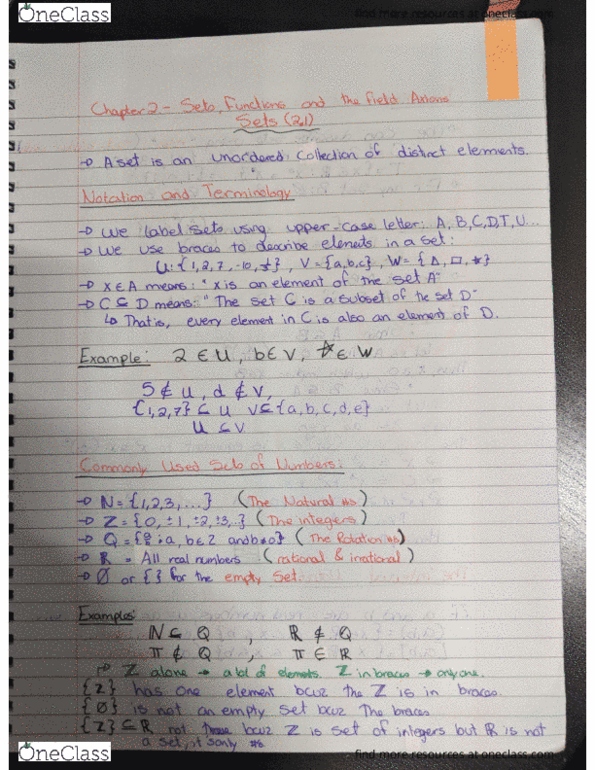 OneClass
find more resources at oneclass.com
Chapter 2 - Sets, Functions and the Field Axioms
Sets (2.1)
→ A set is an unordered collection of distinct elements.
Notation and Terminology
→ We label sets using upper-case letter: A, B, C, D, T, U...
→ We use braces to describe elements in a set:
U = {1, 2, 7, -10, }, V = {a, b, c}, W = {Δ, □, ☆}
→ x ∈ A means: "x is an element of the set A"
→ C ⊆ D means: "The set C is a subset of the set D"
↳ That is, every element in C is also an element of D.
Example: 2 ∈ U, b ∈ V, ☆ ∈ W
5 ∉ U, d ∉ V,
{1, 2, 7} ⊆ U V ⊆ {a, b, c, d, e}
U ⊆ V
Commonly Used Sets of Numbers:
→ N = {1, 2, 3, ...} (The Natural #s)
→ Z = {0, ±1, ±2, ±3..} (The integers)
→ Q = {a/b : a, b ∈ Z and b≠0} (The Rational #s)
→ R = All real numbers (rational & irrational)
→ ∅ or { } for the empty set.
Examples:
N ⊆ Q , R ⊄ Q
π ∉ Q , π ∈ R
Z alone → a lot of elements. Z in braces → only one.
{Z} has one element bcuz the Z is in braces
{∅} is not an empty set bcuz the braces
{Z} ⊆ R not true bcuz Z is set of integers but R is not
a set, it's only #s
OneClass
find more resources at oneclass.com